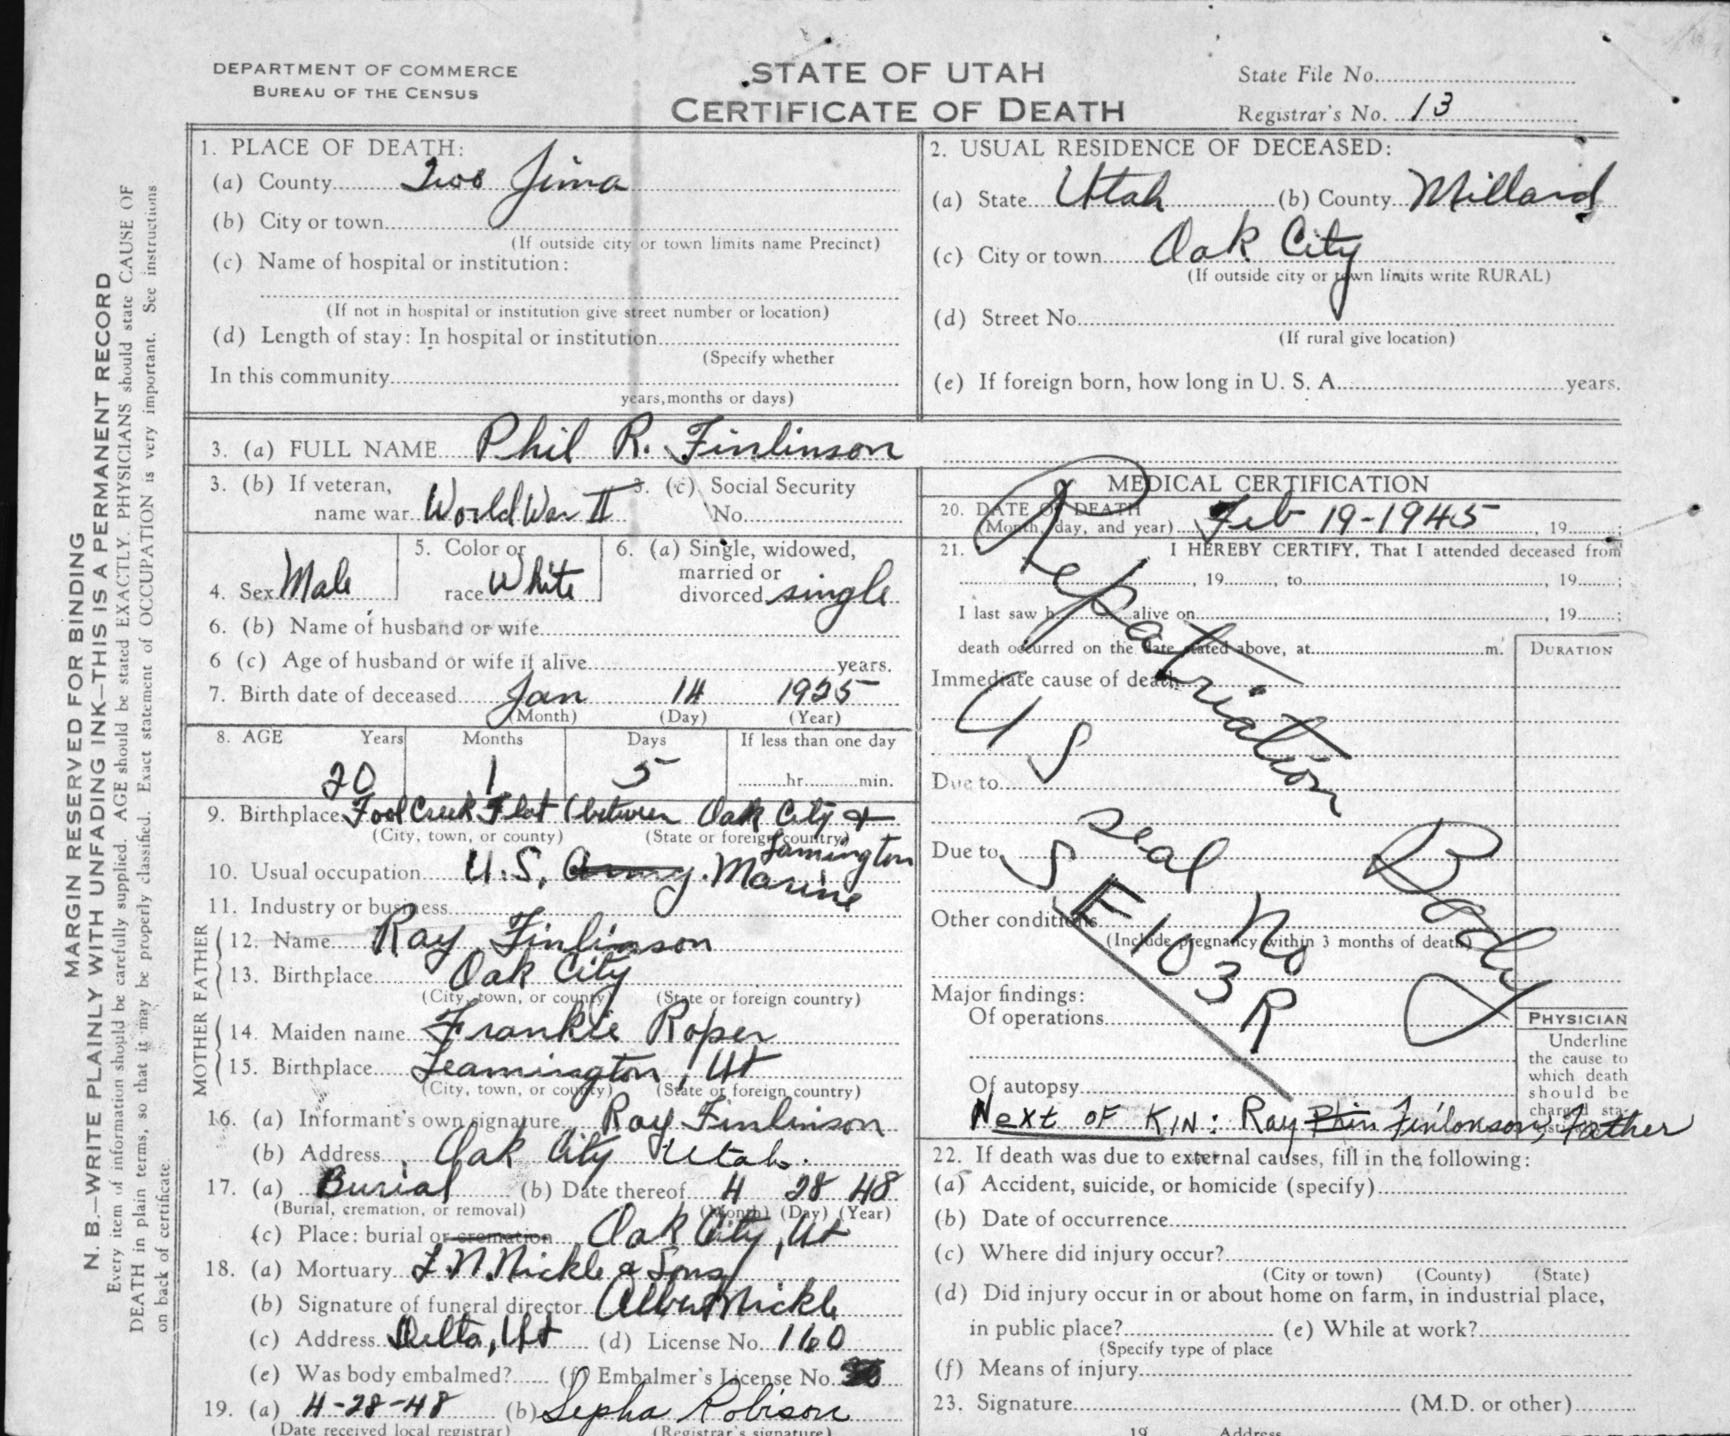 DEPARTMENT OF COMMERCE
BUREAU OF THE CENSUS
STATE OF UTAH
CERTIFICATE OF DEATH
State File No.
Registrar's No. 13
MARGIN RESERVED FOR BINDING
N. B.—WRITE PLAINLY WITH UNFADING INK—THIS IS A PERMANENT RECORD
Every item of information should be carefully supplied. AGE should be stated EXACTLY. PHYSICIANS should state CAUSE OF
DEATH in plain terms, so that it may be properly classified. Exact statement of OCCUPATION is very important. See instructions
on back of certificate.
1. PLACE OF DEATH:
(a) County Iwo Jima
(b) City or town
(If outside city or town limits name Precinct)
(c) Name of hospital or institution:
(If not in hospital or institution give street number or location)
(d) Length of stay: In hospital or institution
(Specify whether
In this community
years, months or days)
2. USUAL RESIDENCE OF DECEASED:
(a) State Utah (b) County Millard
(c) City or town Oak City
(If outside city or town limits write RURAL)
(d) Street No.
(If rural give location)
(e) If foreign born, how long in U. S. A. years.
3. (a) FULL NAME Phil R. Finlinson
3. (b) If veteran,
name war World War II
3. (c) Social Security
No.
4. Sex Male
5. Color or
race White
6. (a) Single, widowed,
married or
divorced single
6. (b) Name of husband or wife
6 (c) Age of husband or wife if alive years.
7. Birth date of deceased Jan 14 1925
(Month) (Day) (Year)
8. AGE Years Months Days If less than one day
20 1 5 hr. min.
9. Birthplace Fool Creek Flat (between Oak City &
(City, town, or county) (State or foreign country)
Leamington
10. Usual occupation U.S. Army. Marine
11. Industry or business
FATHER
12. Name Ray Finlinson
13. Birthplace Oak City
(City, town, or county) (State or foreign country)
MOTHER
14. Maiden name Frankie Roper
15. Birthplace Leamington, Ut
(City, town, or county) (State or foreign country)
16. (a) Informant's own signature Ray Finlinson
(b) Address Oak City Utah.
17. (a) Burial (b) Date thereof 4 28 48
(Burial, cremation, or removal) (Month) (Day) (Year)
(c) Place: burial or cremation Oak City, Ut
18. (a) Mortuary T.N. Nickle & Sons
(b) Signature of funeral director Albert Nickle
(c) Address Delta, Ut (d) License No. 160
(e) Was body embalmed? (f) Embalmer's License No.
19. (a) 4-28-48 (b) Lepha Robison
(Date received local registrar) (Registrar's signature)
MEDICAL CERTIFICATION
20. DATE OF DEATH
(Month, day, and year) Feb 19-1945, 19 ;
21. I HEREBY CERTIFY, That I attended deceased from
, 19 , to , 19 ;
I last saw h alive on , 19 ;
death occurred on the date stated above, at m.
DURATION
Immediate cause of death
Due to
Due to
Other conditions
(Include pregnancy within 3 months of death)
Repatriation Body
U S Seal No
S E 103 R
Major findings:
Of operations
Of autopsy
PHYSICIAN
Underline
the cause to
which death
should be
charged sta-
Next of Kin: Ray Finlonson, Father
22. If death was due to external causes, fill in the following:
(a) Accident, suicide, or homicide (specify)
(b) Date of occurrence
(c) Where did injury occur?
(City or town) (County) (State)
(d) Did injury occur in or about home on farm, in industrial place,
in public place? (e) While at work?
(Specify type of place
(f) Means of injury
23. Signature (M.D. or other)
19 Address